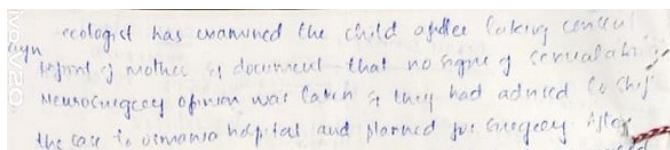 gyn ecologist has examined the child after taking consent
report of mother & document that no signe of sexual
Neurosurgeory opinion was taken & they had adviced to shif
the case to osmania hospital and planned for surgeory. After
vivo V20